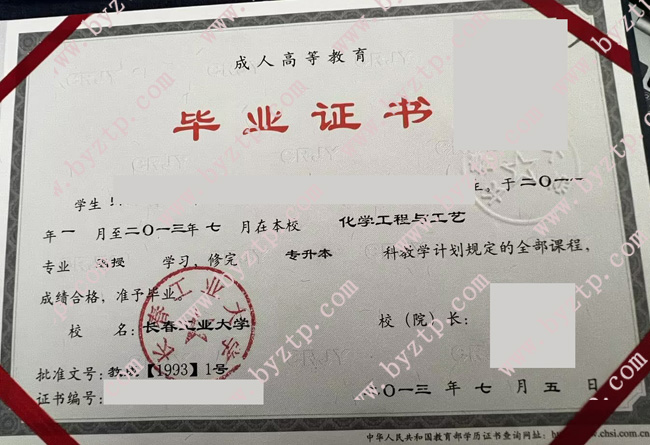 成人高等教育
毕业证书
学生
年。于二〇一一
年 一 月至二〇一三年 七 月在本校 化学工程与工艺
专业 函授 学习，修完 专升本 科教学计划规定的全部课程，
成绩合格，准予毕业。
校 名：长春工业大学 校（院）长：
批准文号：教成【1993】1号
证书编号：
二〇一三 年 七 月 五 日
中华人民共和国教育部学历证书查询网址：
.chsi.com.cn
长春工业大学
www.byztp.com